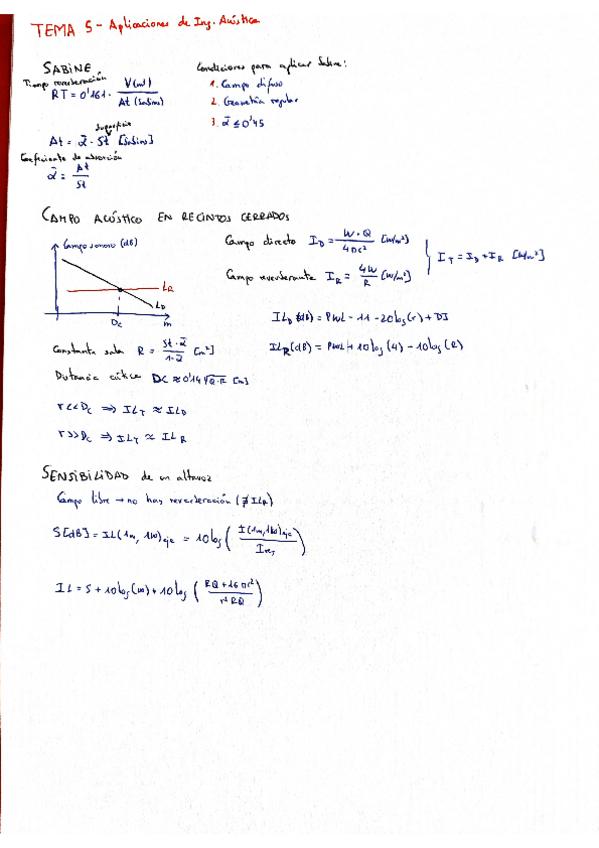 TEMA 5 - Aplicaciones de Ing. Acústica
SABINE
Tiempo reverberación
RT = 0'161 · V(m³) / At (Sabins)
superficie
At = ᾱ · St [Sabins]
Coeficiente de absorción
ᾱ = At / St
Condiciones para aplicar Sabine:
1. Campo difuso
2. Geometría regular
3. ᾱ ≤ 0'45
CAMPO ACÚSTICO EN RECINTOS CERRADOS
Campo sonoro (dB)
LR
LD
Dc
m
Campo directo ID = W · Q / 4πr² [W/m²]
Campo reverberante IR = 4W / R [W/m²]
IT = ID + IR [W/m²]
ILD (dB) = PWL - 11 - 20log(r) + DI
ILR (dB) = PWL + 10log(4) - 10log(R)
Constante sala R = St · ᾱ / 1-ᾱ [m²]
Distancia crítica DC ≈ 0'14 √Q·R [m]
r << Dc ⇒ ILT ≈ ILD
r >> Dc ⇒ ILT ≈ ILR
SENSIBILIDAD de un altavoz
Campo libre → no hay reverberación (∄ ILR)
S[dB] = IL(1m, 1W)eje = 10log ( I(1m, 1W)eje / Iref )
IL = S + 10log(W) + 10log ( RQ + 16πr² / r² RQ )